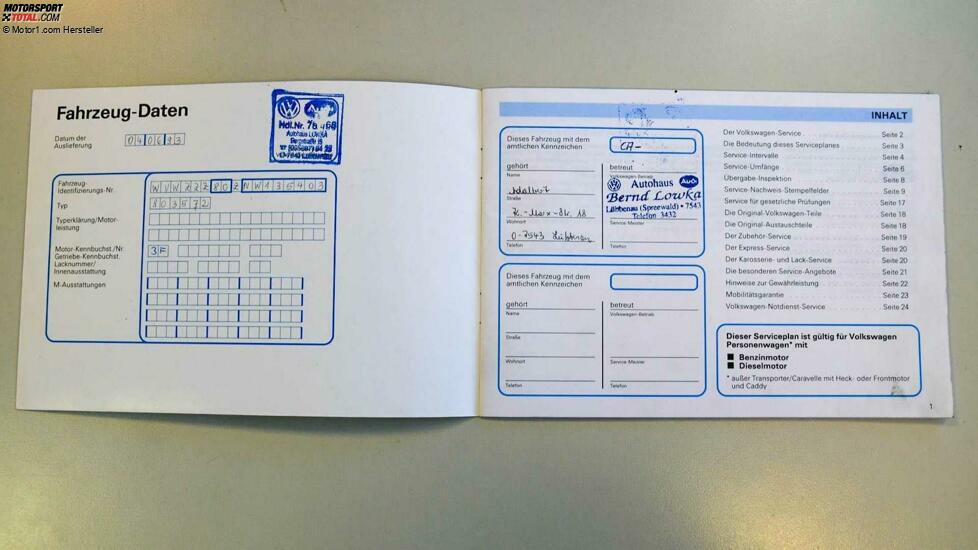 MOTORSPORT
TOTAL.COM
© Motor1.com Hersteller
Fahrzeug-Daten
Datum der
Auslieferung
040693
Hdl.Nr.
Autohaus
Fahrzeug-
Identifizierungs-Nr.
WVWZZZ80ZNW135403
Typ
803572
Typerklärung/Motor-
leistung
Motor-Kennbuchst./Nr.
3F
Getriebe-Kennbuchst.
Lacknummer/
Innenausstattung
M-Ausstattungen
INHALT
Dieses Fahrzeug mit dem
amtlichen Kennzeichen
CA-
gehört
betreut
Name
Volkswagen-Betrieb
Straße
Wohnort
Telefon
Autohaus
Audi
Bernd Lowka
Lübbenau (Spreewald) • 7543
Telefon 3432
Service-Meister
Telefon
Dieses Fahrzeug mit dem
amtlichen Kennzeichen
gehört
betreut
Name
Volkswagen-Betrieb
Straße
Wohnort
Service-Meister
Telefon
Telefon
Der Volkswagen-Service Seite 2
Die Bedeutung dieses Serviceplanes Seite 3
Service-Intervalle Seite 4
Service-Umfänge Seite 6
Übergabe-Inspektion Seite 8
Service-Nachweis-Stempelfelder Seite 9
Service für gesetzliche Prüfungen Seite 17
Die Original-Volkswagen-Teile Seite 18
Die Original-Austauschteile Seite 18
Der Zubehör-Service Seite 19
Der Express-Service Seite 20
Der Karosserie- und Lack-Service Seite 20
Die besonderen Service-Angebote Seite 21
Hinweise zur Gewährleistung Seite 22
Mobilitätsgarantie Seite 23
Volkswagen-Notdienst-Service Seite 24
Dieser Serviceplan ist gültig für Volkswagen
Personenwagen* mit
Benzinmotor
Dieselmotor
* außer Transporter/Caravelle mit Heck- oder Frontmotor
und Caddy
1